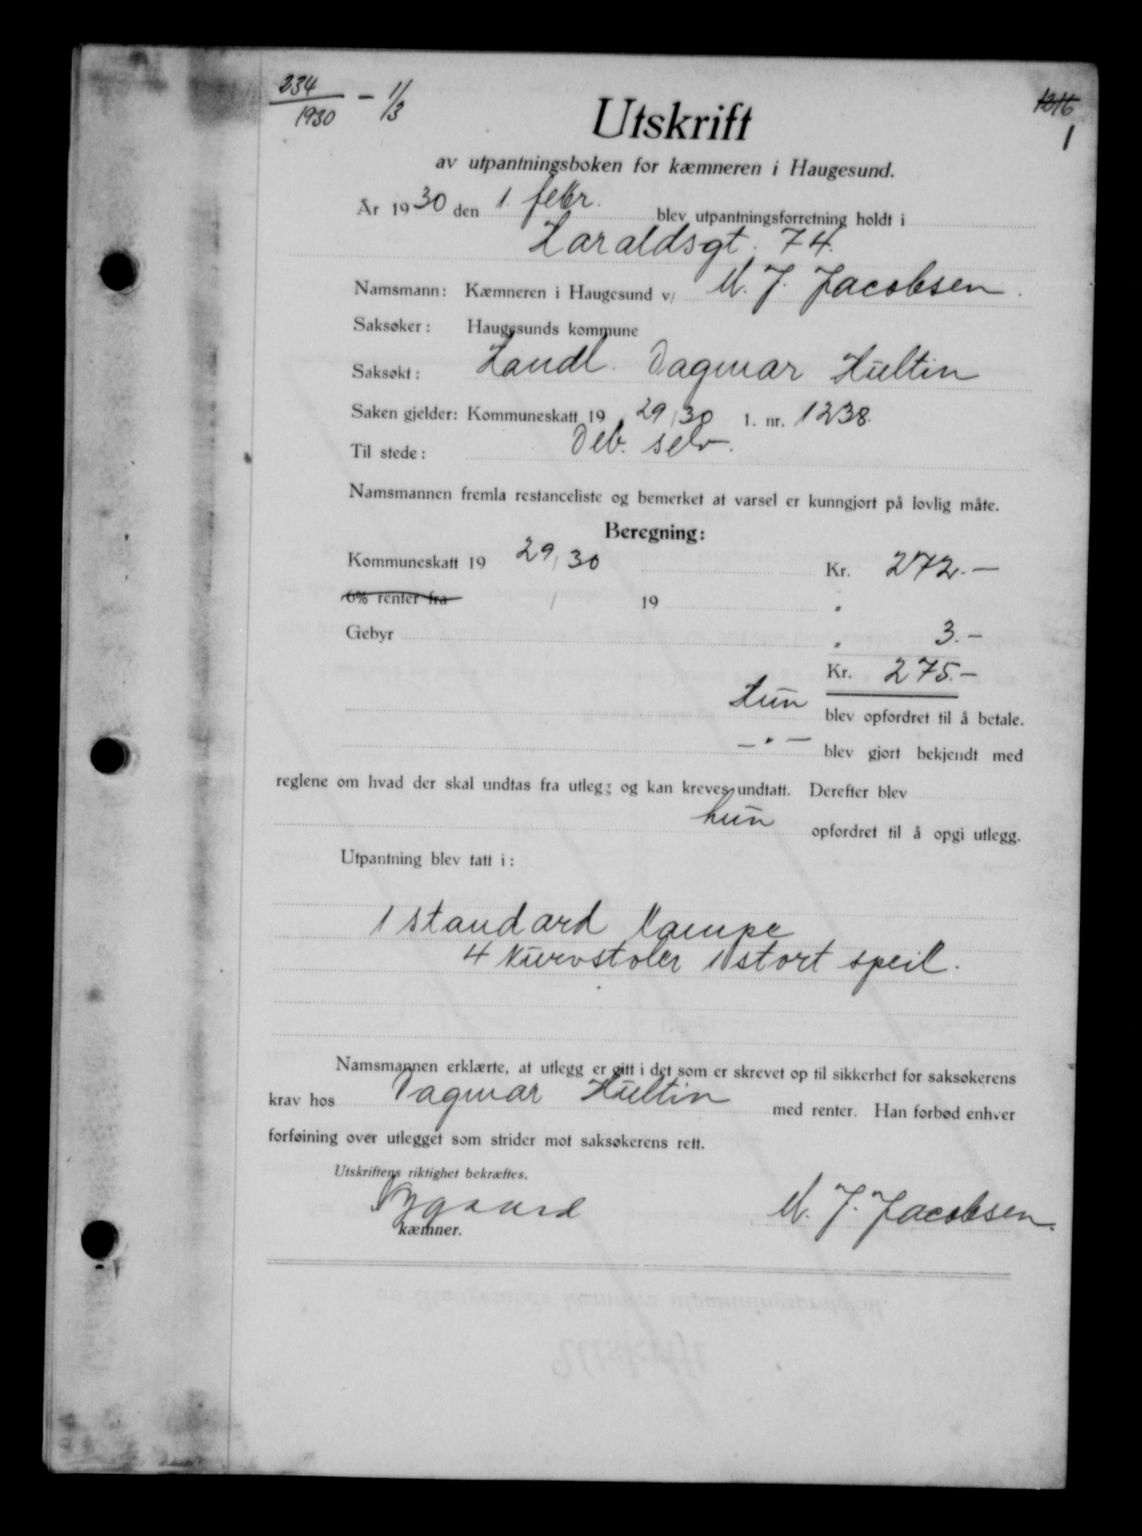 234/1930 - 1/3
1216
1
Utskrift
av utpantningsboken for kæmneren i Haugesund.
År 1930 den 1. febr. blev utpantningsforretning holdt i
Haraldsgt. 74.
Namsmann: Kæmneren i Haugesund v/ M. J. Jacobsen.
Saksøker: Haugesunds kommune
Saksøkt: Handl. Dagmar Hultin
Saken gjelder: Kommuneskatt 19 29/30 l. nr. 1238.
Til stede: Deb. selv.
Namsmannen fremla restanceliste og bemerket at varsel er kunngjort på lovlig måte.
Beregning:
Kommuneskatt 19 29/30 Kr. 272.-
6% renter fra / 19 "
Gebyr " 3.-
Kr. 275.-
Hun blev opfordret til å betale.
- " - blev gjort bekjendt med
reglene om hvad der skal undtas fra utlegg og kan kreves undtatt. Derefter blev
hun opfordret til å opgi utlegg.
Utpantning blev tatt i:
1 standard lampe
4 kurvstoler 1 stort speil.
Namsmannen erklærte, at utlegg er gitt i det som er skrevet op til sikkerhet for saksøkerens
krav hos Dagmar Hultin med renter. Han forbød enhver
forføining over utlegget som strider mot saksøkerens rett.
Utskriftens riktighet bekræftes.
M. J. Jacobsen.
kæmner.